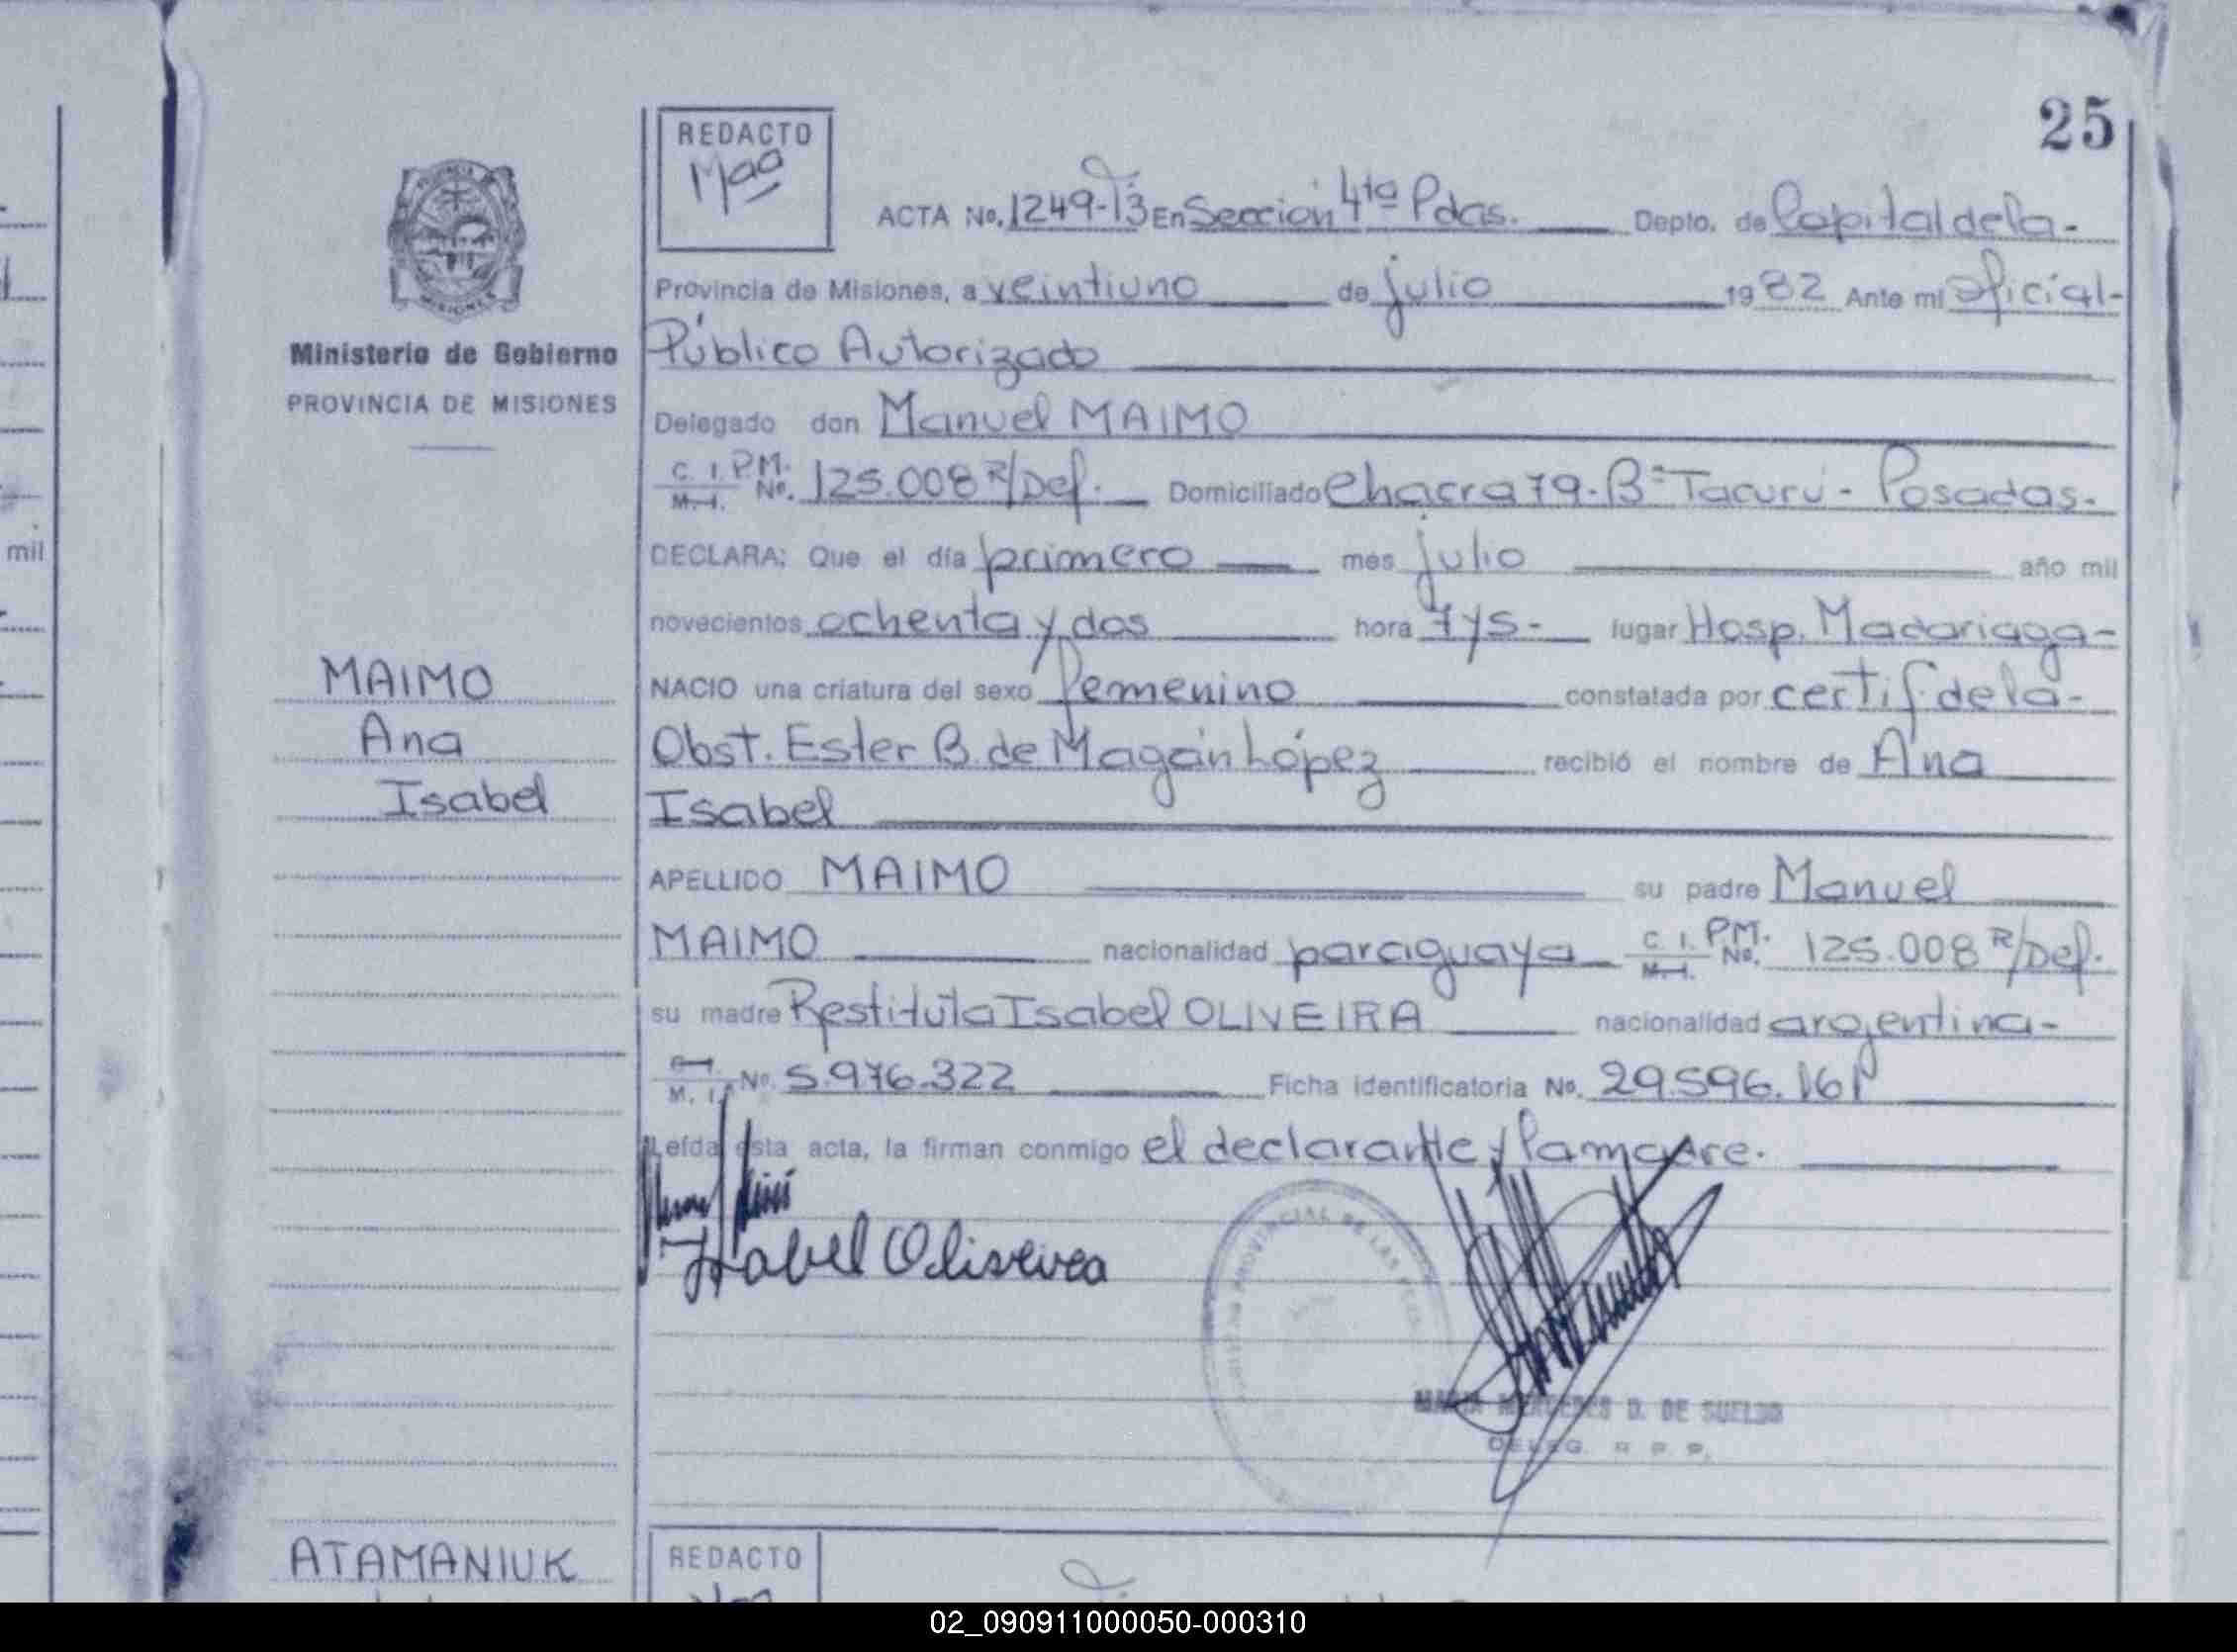 25
REDACTO
Maa
ACTA No. 1249-T3 En Sección 4ta Pdas. Depto. de Capital de la-
Provincia de Misiones, a veintiuno de julio 1982 Ante mi Oficial-
Ministerio de Gobierno
PROVINCIA DE MISIONES
Público Autorizado
Delegado don Manuel MAIMO
C. I. P.M. M. I. No. 125.008 R/Def. Domiciliado Chacra 79-Bº Tacurú- Posadas.
DECLARA: Que el día primero mes julio año mil
mil
novecientos ochenta y dos hora 7y5- lugar Hosp. Madariaga-
MAIMO
Ana
Isabel
NACIO una criatura del sexo femenino constatada por certif de la-
Obst. Ester B. de Magán López recibió el nombre de Ana
Isabel
APELLIDO MAIMO su padre Manuel
MAIMO nacionalidad paraguaya C. I. P.M. M. I. No. 125.008 R/Def.
su madre Restituta Isabel OLIVEIRA nacionalidad argentina-
M. I. No. 5.976.322 Ficha identificatoria No. 29.596.161
Leída esta acta, la firman conmigo el declarante y la madre.
Isabel Oliveira
PROVINCIAL DE LAS
MARIA MERCEDES D. DE SUELDO
DELEG. R. P. P.
ATAMANIUK
REDACTO
02_090911000050-000310